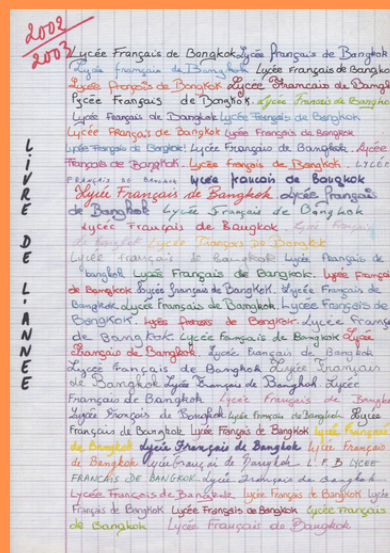 2002
2003
LIVRE DE L'ANNEE
Lycée Français de Bangkok Lycée Français de Bangkok
Lycée français de Bangkok Lycée Français de Bangkok
Lycée Français de Bangkok Lycée Français de Bangk
Lycée Français de Bangkok. Lycée Français de Bangkok
Lycée Français de Bangkok Lycée Français de Bangkok
Lycée Français de Bangkok Lycée Français de Bangkok
Lycée Français de Bangkok! Lycée Français de Bangkok. Lycée
Français de Bangkok. Lycée Français de Bangkok. LYCÉE
FRANÇAIS DE Lycée francais de Bangkok
Lycée Français de Bangkok. Lycée Français
de Bangkok Lycée Français de Bangkok
Lycée Français de Bangkok. Lycée Français
de Bangkok Lycée Français de Bangkok
Lycée français de Bangkok Lycée Français de
bangkok Lycée Français de Bangkok. Lycée França
de Bangkok. Lycée français de Bangkok. Lycée Français de
Bangkok. Lycée Français de Bangkok. Lycée Français de
Bangkok. Lycée français de Bangkok. Lycée França
de Bangkok. Lycée Français de Bangkok Lycée
Français de Bangkok. Lycée Français de Bangkok
Lycée Français de Bangkok Lycée Français
de Bangkok Lycée Français de Bangkok. Lycée
Français de Bangkok Lycée Français de Bangko
Lycée Français de Bangkok Lycée Français de Bangkok. Lycée
Français de Bangkok Lycée Français de Bangkok Lycée Français
de Bangkok Lycée Français de Bangkok Lycée Français
de Bangkok Lycée Français de Bangkok. L. F. B LYCEE
FRANCAIS DE BANGKOK. Lycée Français de Bangkok.
Lycée Français de Bangkok Lycée Français de Bangkok Lycée
Français de Bangkok Lycée Français de Bangkok Lycée Français
de Bangkok Lycée Français de Bangkok